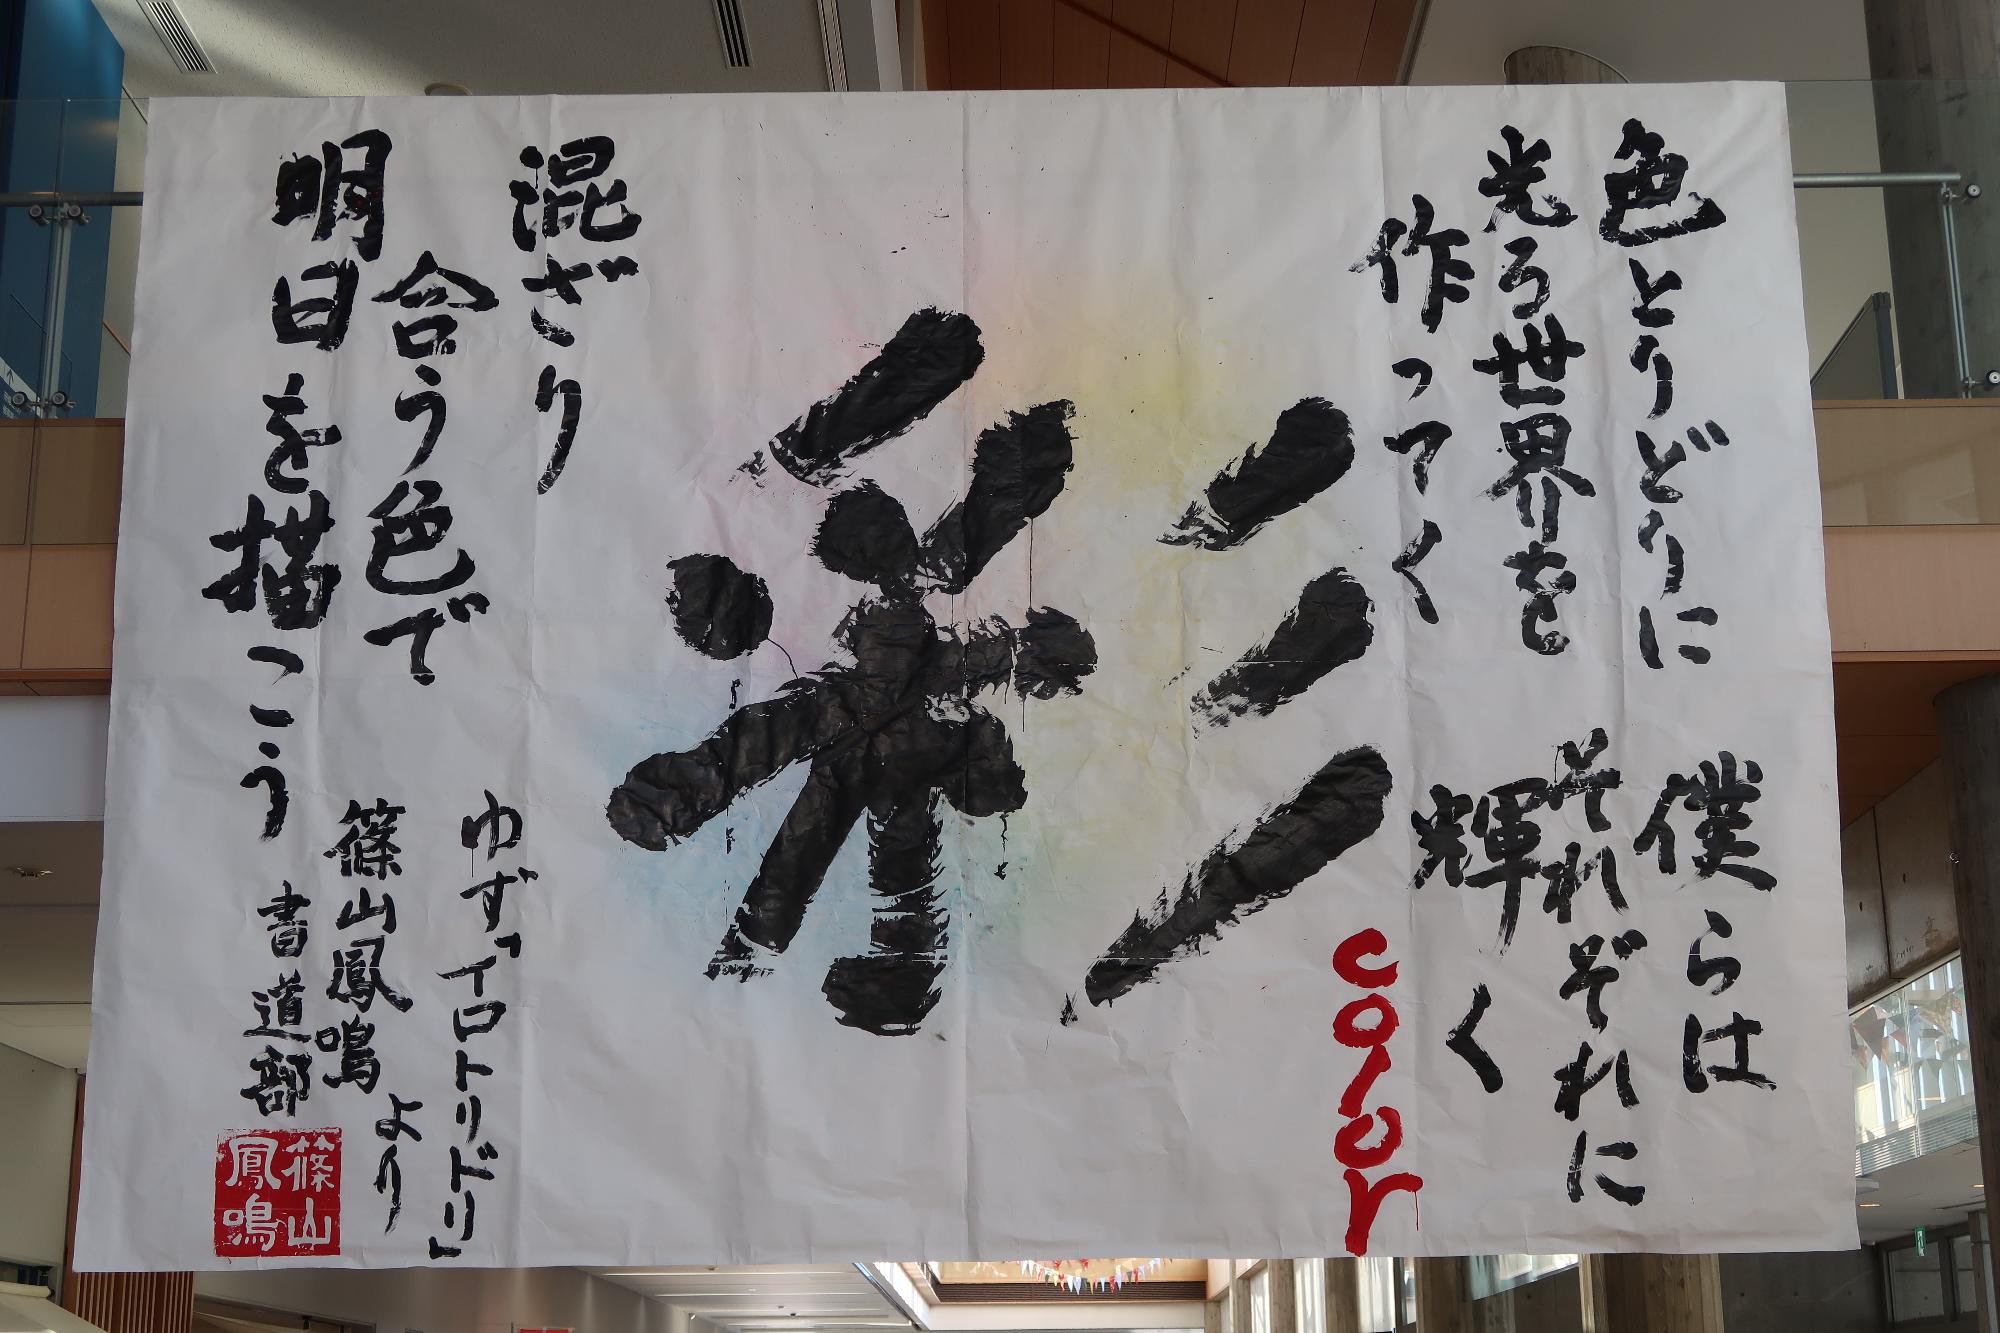 色とりどりに
光る世界を
作ってく
僕らは
それぞれに
輝く
color
彩
混ざり
合う色で
明日を描こう
ゆず「イロトリドリ」
より
篠山鳳鳴
書道部
篠山
鳳鳴